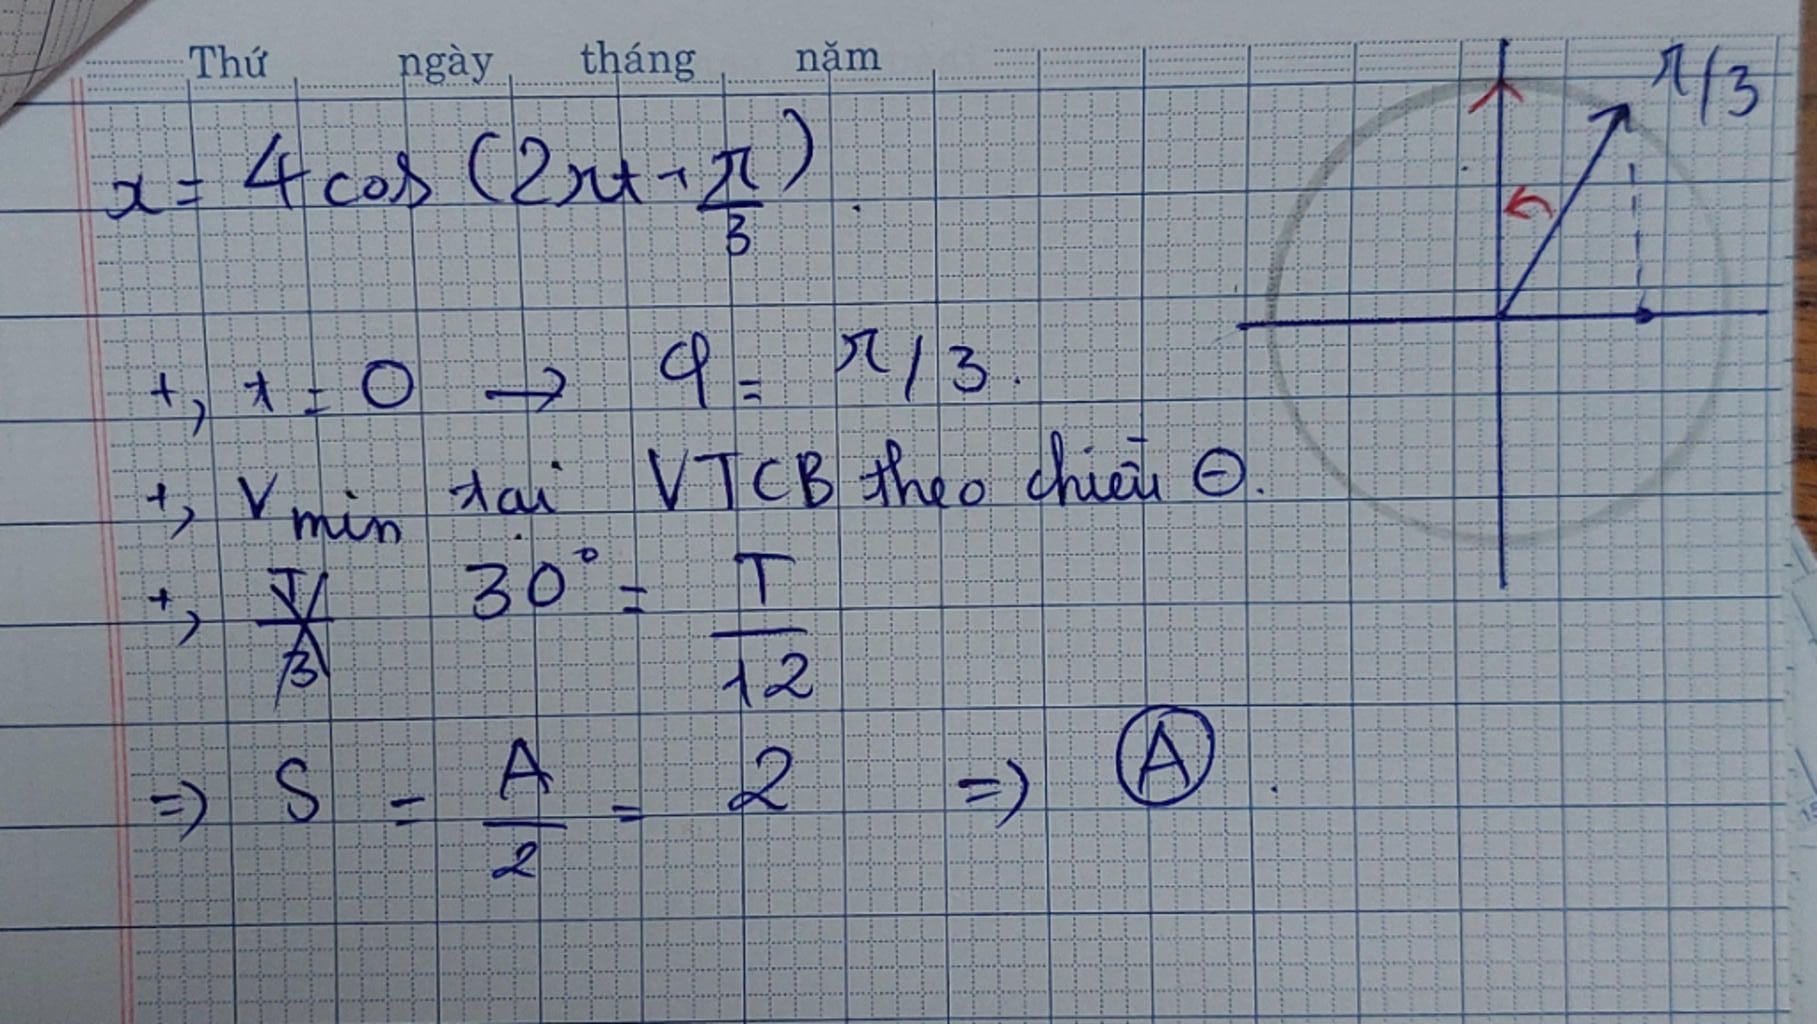 Thứ ngày tháng năm
π/3
x = 4 cos (2πt + π/3).
+, t = 0 → φ = π/3.
+, v min tại VTCB theo chiều ⊖.
+, T/3 30° = T/12
=> S = A/2 = 2 => Ⓐ.